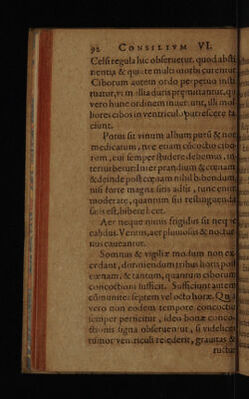 92 CONSILIVM VI.
Celsi regula huc obseruetur, quod absti
nentia & quiete multi morbi curentur
Ciborum autem ordo perpetuo insti
tuatur, vt mollia duris præmittantur, qui
vero hunc ordinem inuertunt, illi mol
liores cibos in ventriculo putrescere fa
ciunt.
Potus sit vinum album purũ & non
medicatum, nec etiam cũ cocto cibo
rum, cui semper studere debemus, in
terturbetur. Inter prandium & cœnam
& deinde post cœnam nihil bibendum,
nisi forte magna sitis adsit, tunc enim
moderate, quantum siti restinguendæ
satis est, bibere licet.
Aer neque nimis frigidus sit neque
calidus. Ventus, aer pluuiosus & noctur
nus caueantur.
Somnus & vigiliæ modum non ex
cedant, dormiendum tribus horis post
cœnam, & tantum, quantum ciborum
concoctioni sufficit. Sufficiunt autem
cõmuniter septem vel octo horæ. Quia
vero non eodem tempore concoctio
semper perficitur, ideo bonæ conco-
ctionis signa obseruentur, si videlicet
tumor ventriculi resederit, grauitas &
ructus